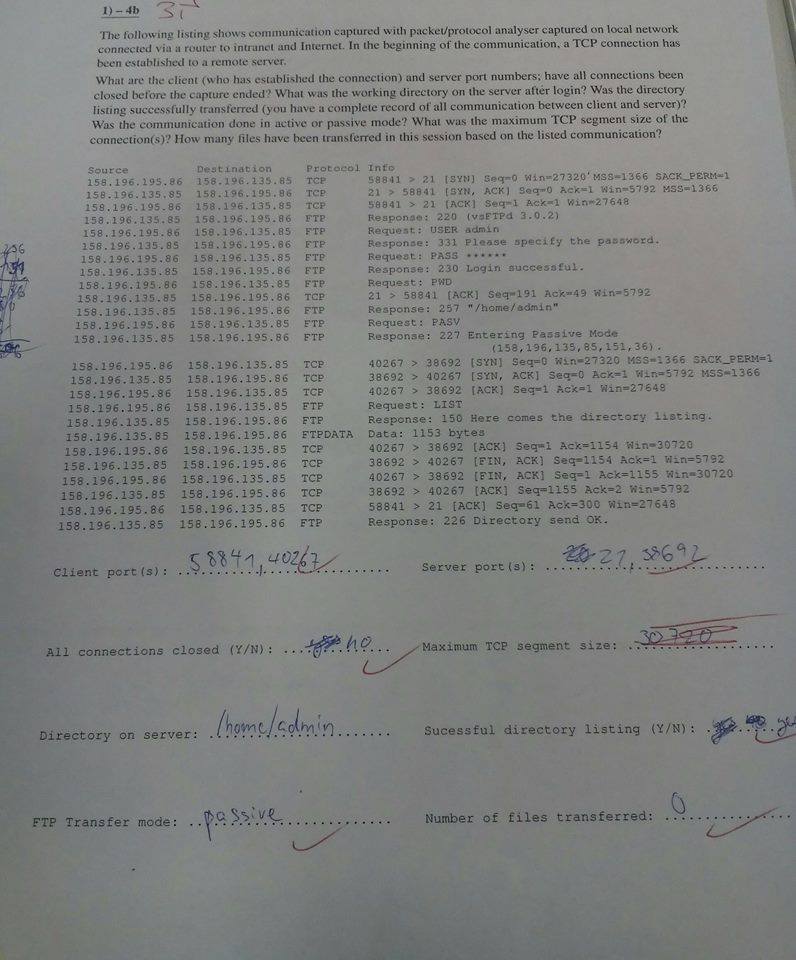 1) – 4b
The following listing shows communication captured with packet/protocol analyser captured on local network
connected via a router to intranet and Internet. In the beginning of the communication, a TCP connection has
been established to a remote server.
What are the client (who has established the connection) and server port numbers; have all connections been
closed before the capture ended? What was the working directory on the server after login? Was the directory
listing successfully transferred (you have a complete record of all communication between client and server)?
Was the communication done in active or passive mode? What was the maximum TCP segment size of the
connection(s)? How many files have been transferred in this session based on the listed communication?
Source Destination Protocol Info
158.196.195.86 158.196.135.85 TCP 58841 > 21 [SYN] Seq=0 Win=27320 MSS=1366 SACK_PERM=1
158.196.135.85 158.196.195.86 TCP 21 > 58841 [SYN, ACK] Seq=0 Ack=1 Win=5792 MSS=1366
158.196.195.86 158.196.135.85 TCP 58841 > 21 [ACK] Seq=1 Ack=1 Win=27648
158.196.135.85 158.196.195.86 FTP Response: 220 (vsFTPd 3.0.2)
158.196.195.86 158.196.135.85 FTP Request: USER admin
158.196.135.85 158.196.195.86 FTP Response: 331 Please specify the password.
158.196.195.86 158.196.135.85 FTP Request: PASS ******
158.196.135.85 158.196.195.86 FTP Response: 230 Login successful.
158.196.195.86 158.196.135.85 FTP Request: PWD
158.196.135.85 158.196.195.86 TCP 21 > 58841 [ACK] Seq=191 Ack=49 Win=5792
158.196.135.85 158.196.195.86 FTP Response: 257 "/home/admin"
158.196.195.86 158.196.135.85 FTP Request: PASV
158.196.135.85 158.196.195.86 FTP Response: 227 Entering Passive Mode
(158,196,135,85,151,36).
158.196.195.86 158.196.135.85 TCP 40267 > 38692 [SYN] Seq=0 Win=27320 MSS=1366 SACK_PERM=1
158.196.135.85 158.196.195.86 TCP 38692 > 40267 [SYN, ACK] Seq=0 Ack=1 Win=5792 MSS=1366
158.196.195.86 158.196.135.85 TCP 40267 > 38692 [ACK] Seq=1 Ack=1 Win=27648
158.196.195.86 158.196.135.85 FTP Request: LIST
158.196.135.85 158.196.195.86 FTP Response: 150 Here comes the directory listing.
158.196.135.85 158.196.195.86 FTPDATA Data: 1153 bytes
158.196.195.86 158.196.135.85 TCP 40267 > 38692 [ACK] Seq=1 Ack=1154 Win=30720
158.196.135.85 158.196.195.86 TCP 38692 > 40267 [FIN, ACK] Seq=1154 Ack=1 Win=5792
158.196.195.86 158.196.135.85 TCP 40267 > 38692 [FIN, ACK] Seq=1 Ack=1155 Win=30720
158.196.135.85 158.196.195.86 TCP 38692 > 40267 [ACK] Seq=1155 Ack=2 Win=5792
158.196.195.86 158.196.135.85 TCP 58841 > 21 [ACK] Seq=61 Ack=300 Win=27648
158.196.135.85 158.196.195.86 FTP Response: 226 Directory send OK.
Client port(s): 58841, 40267 Server port(s): 21, 38692
All connections closed (Y/N): no Maximum TCP segment size: 30720
Directory on server: /home/admin Sucessful directory listing (Y/N): yes
FTP Transfer mode: passive Number of files transferred: 0